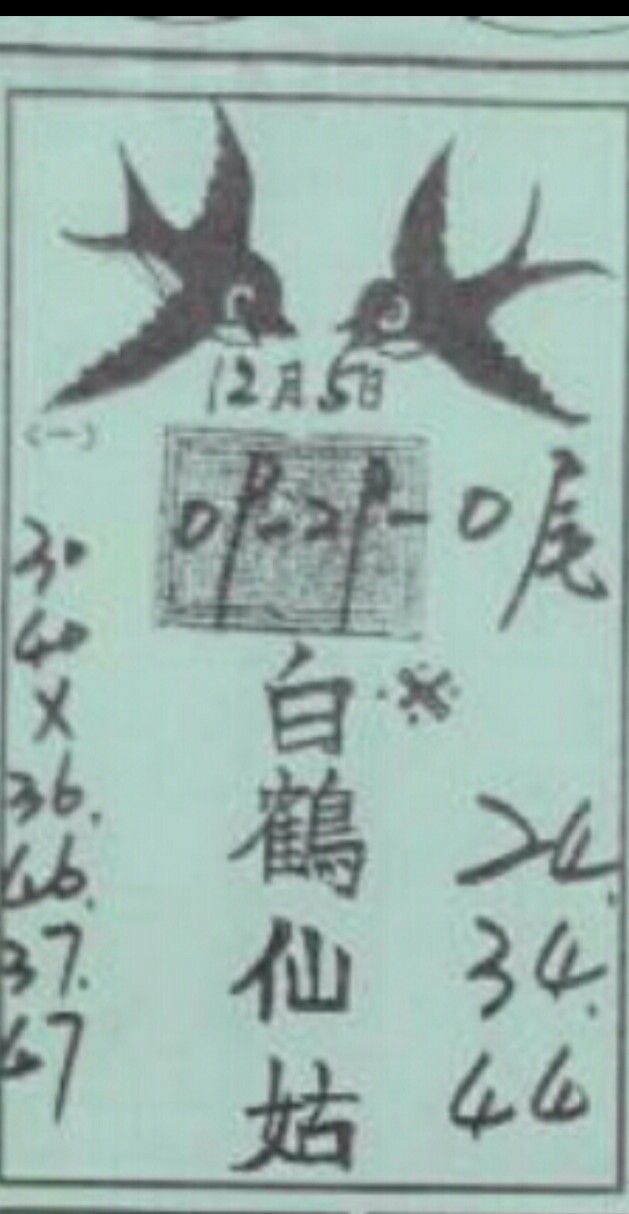 12月5日
(一)
0尾
30
40
X
36.
46.
37.
47
白鶴仙姑
※
24.
34.
44